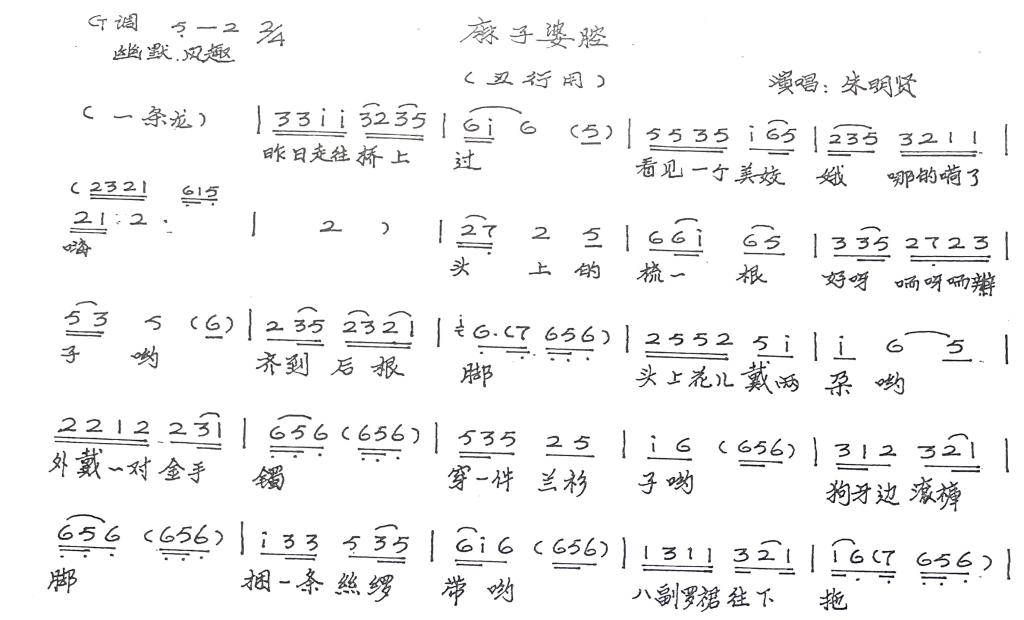 G调 5—2 2/4 麻子婆腔
幽默.风趣 (丑行用) 演唱：朱明贤
(一条龙) | 3 3 i i 3 2 3 5 | 6 i 6 (5) | 5 5 3 5 i 6 5 | 2 3 5 3 2 1 1 |
昨日走往桥上 过 看见一个美姣 娥 哪的嗬了
(2 3 2 1 6 1 5
2 1 : 2 · | 2 ) | 2 7 2 5 | 6 6 i 6 5 | 3 3 5 2 7 2 3 |
嗨 头 上 的 梳一 根 好呀 哂呀哂辫
5 3 5 (6) | 2 3 5 2 3 2 1 | i 6 · (7 6 5 6) | 2 5 5 2 5 i | i 6 5 |
子 哟 齐到 后根 脚 头上花儿戴两 朵 哟
2 2 1 2 2 3 1 | 6 5 6 (6 5 6) | 5 3 5 2 5 | i 6 (6 5 6) | 3 1 2 3 2 1 |
外戴一对金手 镯 穿一件 兰衫 子哟 狗牙边 滚裤
6 5 6 (6 5 6) | i 3 3 5 3 5 | 6 i 6 (6 5 6) | 1 3 1 1 3 2 1 | i 6 (7 6 5 6) |
脚 捆一条 丝缪 带 哟 八副罗裙往下 拖